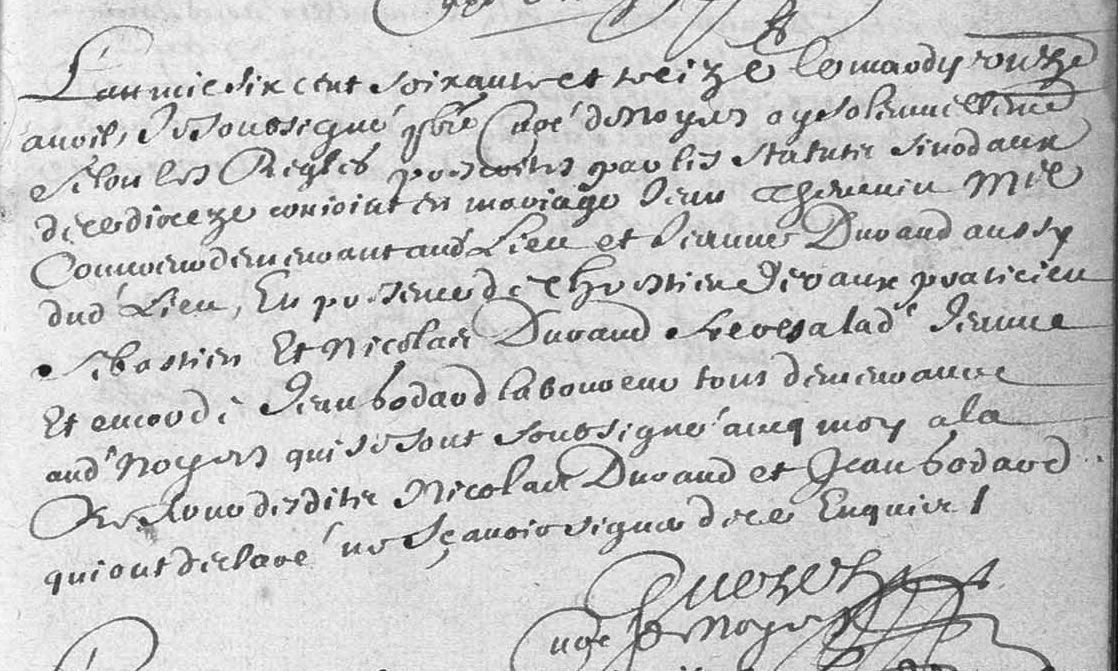 L'an mil six cent soixante et treize le mardy onze
avril, Je soubsigné pbre Curé de Noyers ay solennellemt
selon les Regles prescrites par les statuts sinodaux
de ce dioceze conjoint en mariage Jean Thevenin Me
Couvreur demeurant aud Lieu et Jeanne Durand aussy
dud Lieu, En presence de Chrestien Devaux praticien
Sebastien Et Nicolas Durand freres a lade Jeanne
Et encor de Jean bodard laboureur tous demeurans
aud Noyers qui se sont soubsigné avecq moy a la
Reserve desdits Nicolas Durand et Jean bodard
qui ont declaré ne sçavoir signer de ce Enquis
Curé de Noyers